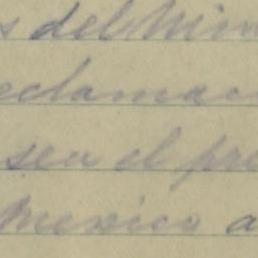 s del Min
eclamac
sea el pre
Mexico a